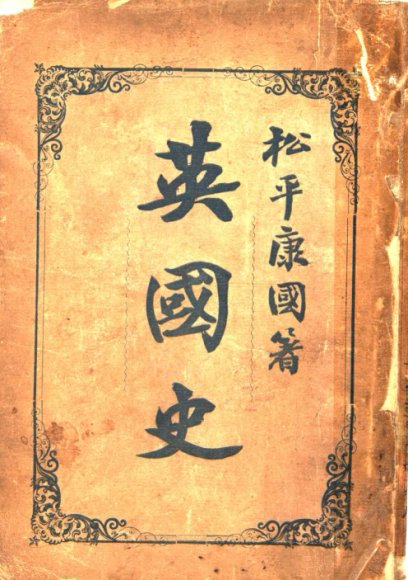 松平康國著
英國史